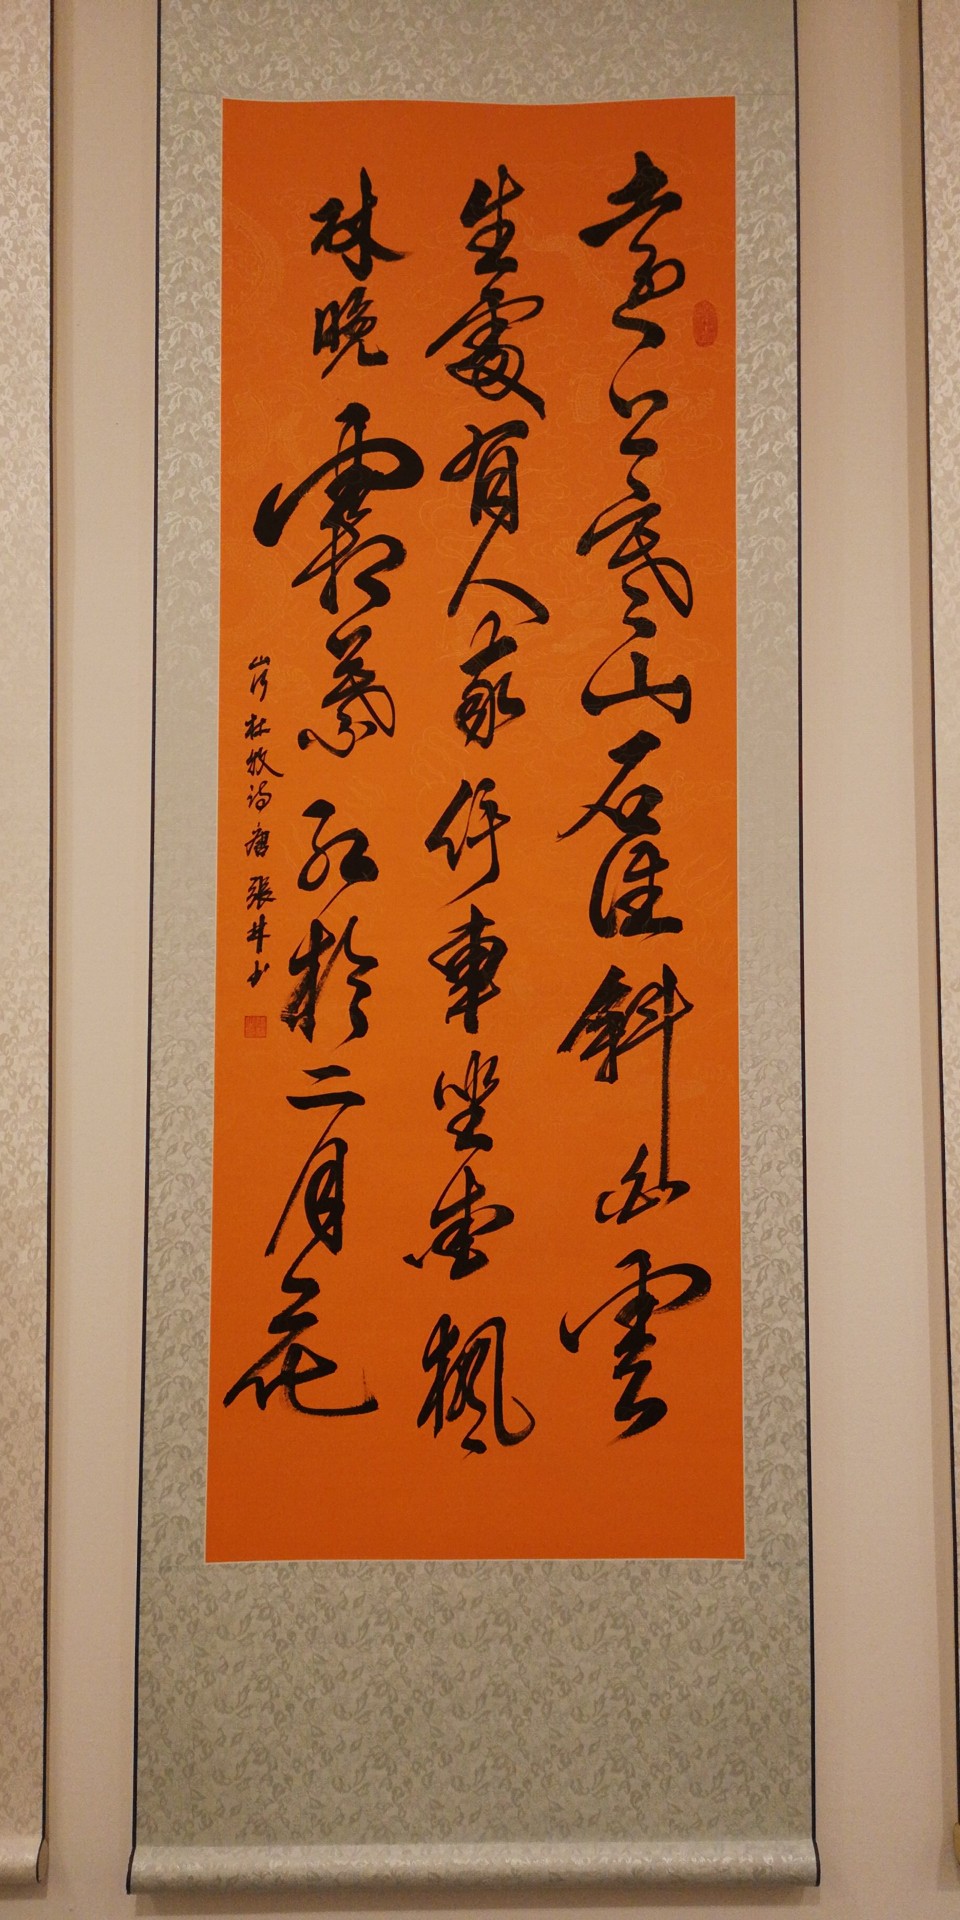 遠上寒山石徑斜白雲
生處有人家停車坐愛楓
林晚霜葉紅於二月花
山行杜牧詩唐張井书